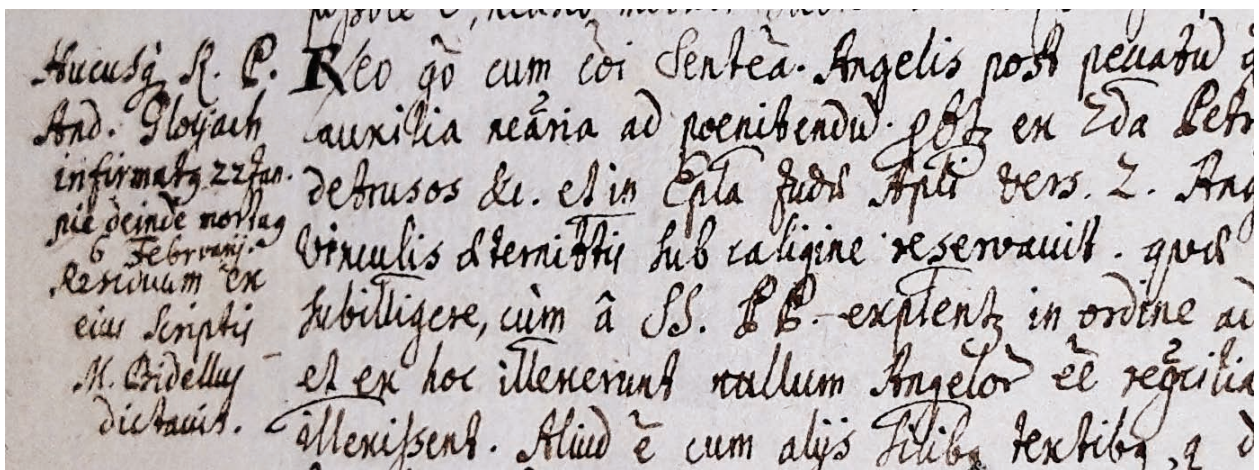 Hucusq R. P.
And. Gloyach
infirmatq 22 Jan.
pie deinde mortuq
6 Februarij.
Residuum ex
eius scriptis
M. Bidellus
dictavit.
Reo gō cum cōi Sentēa. Angelis post peccatū
auxilia neāria ad poenitendū. ex 2da Petr
detrusos &c. et in Epla Judæ Apli vers. 2. Ang
vinculis æternis sub caligine reservavit. quod
subilligere, cùm ā SS. PP. explent in ordine ad
et ex hoc illexerunt nullum Angelor ēē
illexissent. Aliud ē cum alijs silibq textibq, q d